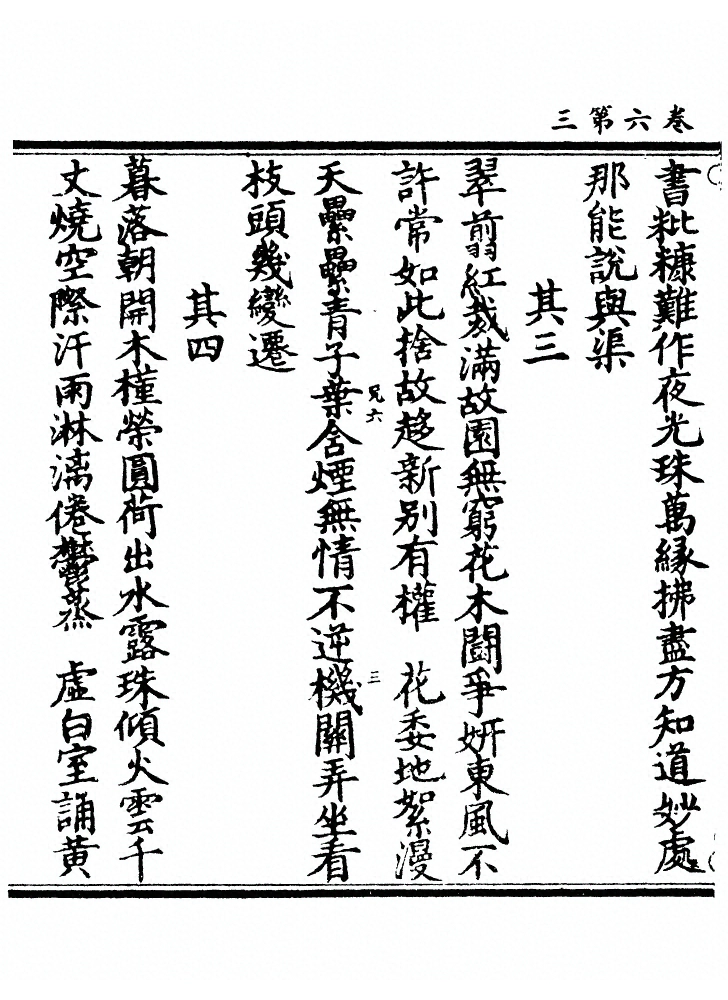 三第六卷
書粃糠難作夜光珠萬緣拂盡方知道妙處
那能說與渠
其三
翠剪紅裁滿故園無窮花木鬪爭妍東風不
許常如此捨故趍新別有權　花委地絮漫
天纍纍青子葉含煙無情不逆機關弄坐看
枝頭幾變遷
其四
暮落朝開木槿榮圓荷出水露珠傾火雲千
丈燒空際汗雨淋漓倦鬱蒸　虛白室誦黃
兄六
三